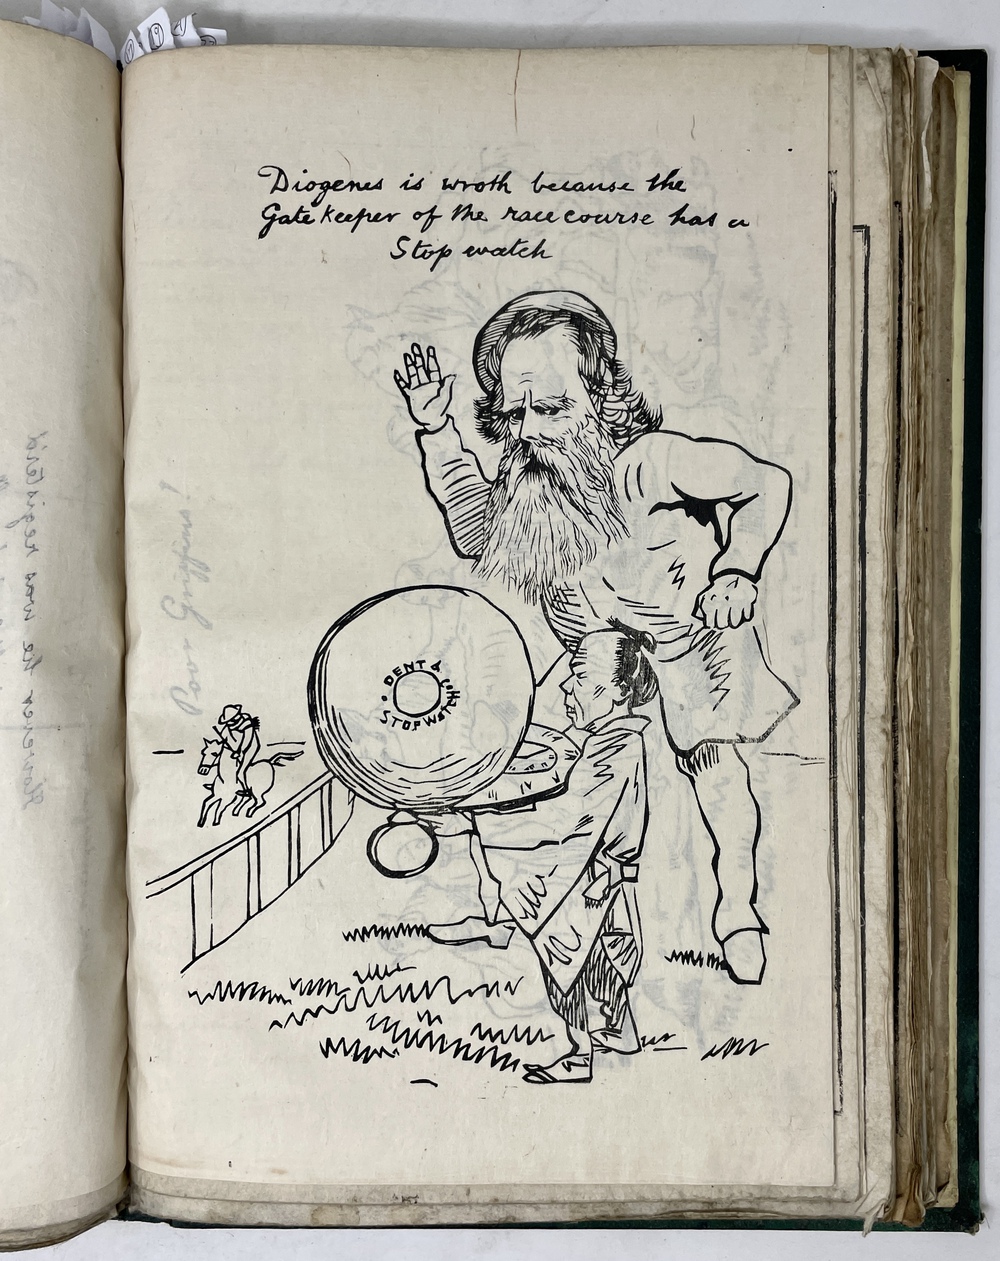 Diogenes is wroth because the
Gate keeper of the race course has a
Stop watch
DENT & Co's
STOPWATCH
IV
V
Poor Griffins!
However he was register'd